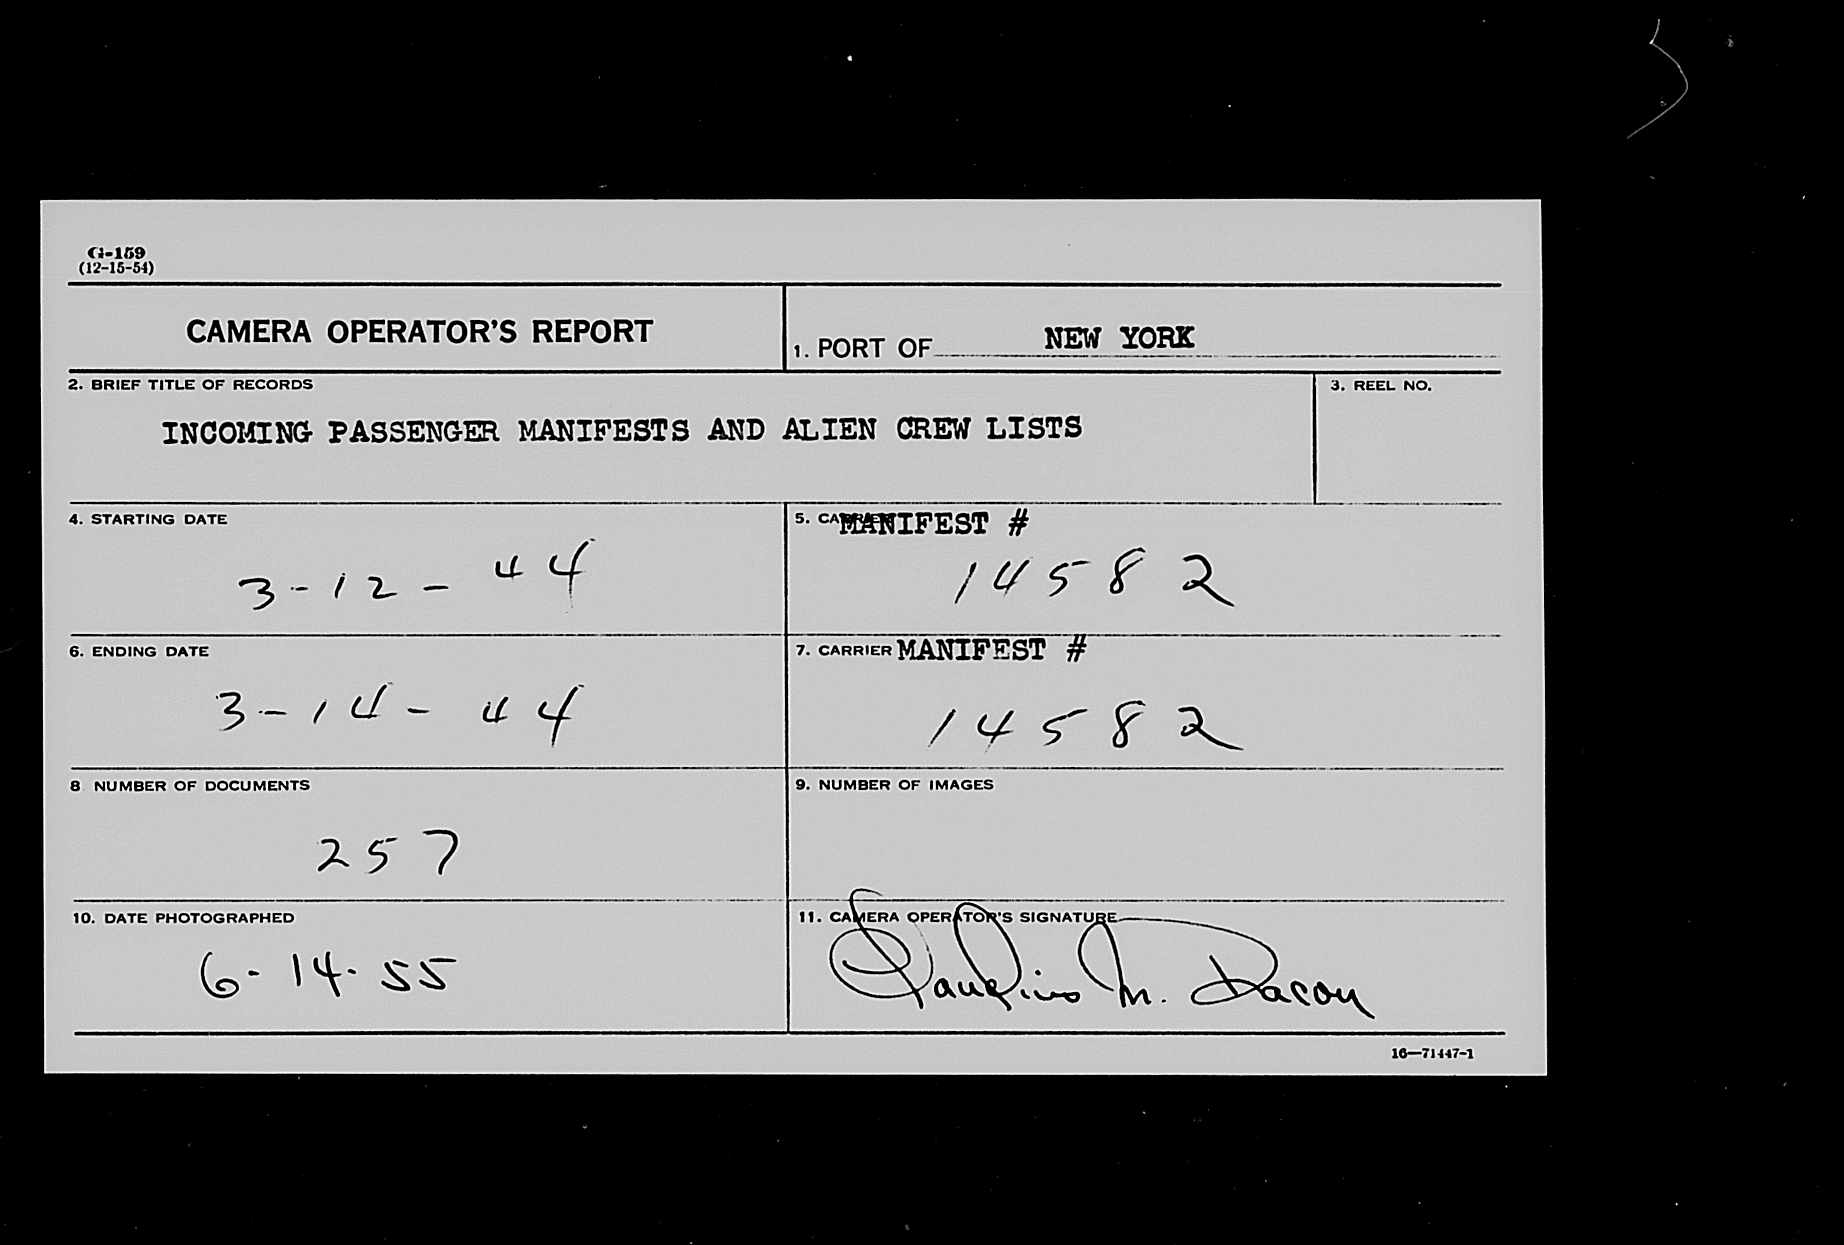 G-159
(12-15-54)
CAMERA OPERATOR'S REPORT
1. PORT OF NEW YORK
2. BRIEF TITLE OF RECORDS
3. REEL NO.
INCOMING PASSENGER MANIFESTS AND ALIEN CREW LISTS
4. STARTING DATE
5. CARRIER MANIFEST #
3-12-44
14582
6. ENDING DATE
7. CARRIER MANIFEST #
3-14-44
14582
8 NUMBER OF DOCUMENTS
9. NUMBER OF IMAGES
257
10. DATE PHOTOGRAPHED
11. CAMERA OPERATOR'S SIGNATURE
6-14-55
M.
16—71447-1